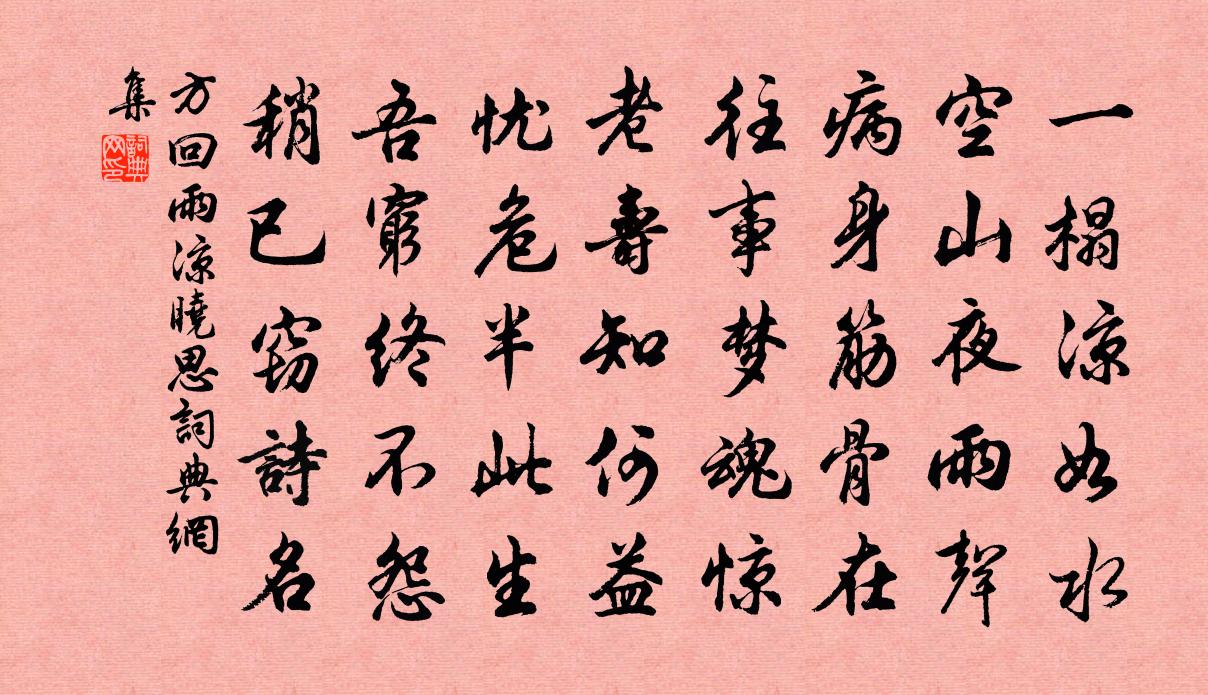 一榻凉如水
空山夜雨聲
病身筋骨在
往事梦魂惊
老壽知何益
忧危半此生
吾窮終不怨
稍已窃詩名
方回雨凉曉思詞典網
集
詞典网印